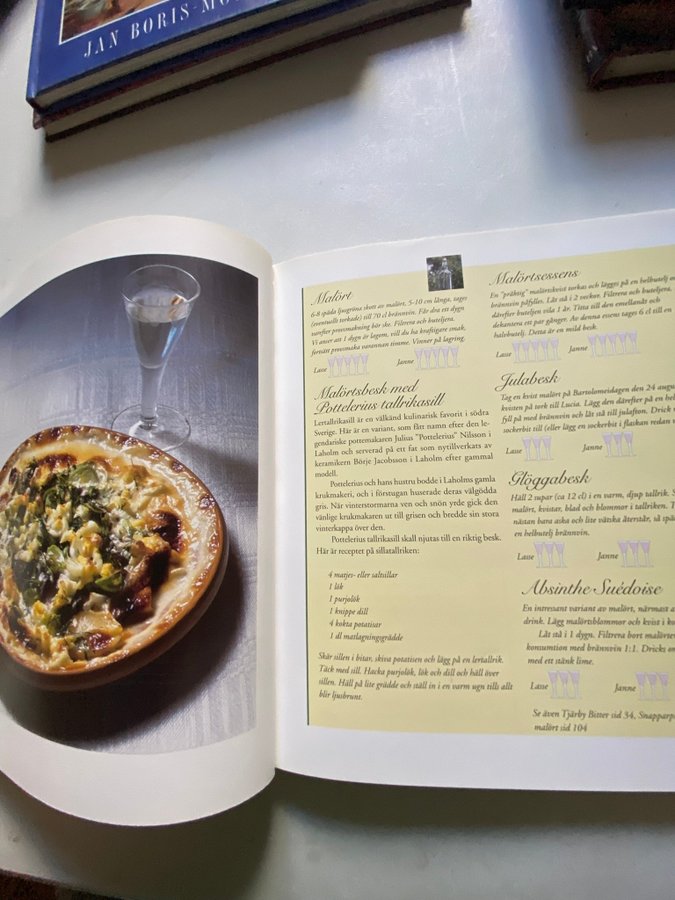 JAN BORIS-MÖ
Malört
6-8 späda ljusgröna skott av malört, 5-10 cm långa, tages
(eventuellt torkade) till 70 cl brännvin. Får dra ett dygn
varefter provsmakning bör ske. Filtrera och buteljera.
Vi anser att 1 dygn är lagom, vill du ha kraftigare smak,
fortsätt provsmaka varannan timme. Vinner på lagring.
Lasse
Janne
Malörtsbesk med
Pottelerius tallrikasill
Lertallrikasill är en välkänd kulinarisk favorit i södra
Sverige. Här är en variant, som fått namn efter den le-
gendariske pottemakaren Julius "Pottelerius" Nilsson i
Laholm och serverad på ett fat som nytillverkats av
keramikern Börje Jacobsson i Laholm efter gammal
modell.
Pottelerius och hans hustru bodde i Laholms gamla
krukmakeri, och i förstugan huserade deras välgödda
gris. När vinterstormarna ven och snön yrde gick den
vänlige krukmakaren ut till grisen och bredde sin stora
vinterkappa över den.
Pottelerius tallrikasill skall njutas till en riktig besk.
Här är receptet på sillatallriken:
4 matjes- eller saltsillar
1 lök
1 purjolök
1 knippe dill
4 kokta potatisar
1 dl matlagningsgrädde
Skär sillen i bitar, skiva potatisen och lägg på en lertallrik.
Täck med sill. Hacka purjolök, lök och dill och häll över
sillen. Häll på lite grädde och ställ in i en varm ugn tills allt
blir ljusbrunt.
Malörtsessens
En "präktig" malörtskvist torkas och lägges på en helbutelj o
brännvin påfylles. Låt stå i 2 veckor. Filtrera och buteljera,
därefter buteljen vila 1 år. Titta till den emellanåt och
dekantera ett par gånger. Av denna essens tages 6 cl till en
halvbutelj. Detta är en mild besk.
Lasse
Janne
Julabesk
Tag en kvist malört på Bartolomeidagen den 24 augus
kvisten på tork till Lucia. Lägg den därefter på en helb
fyll på med brännvin och låt stå till julafton. Drick
sockerbit till (eller lägg en sockerbit i flaskan redan
Lasse
Janne
Glöggabesk
Häll 2 supar (ca 12 cl) i en varm, djup tallrik. S
malört, kvistar, blad och blommor i tallriken. T
nästan bara aska och lite vätska återstår, så spä
en helbutelj brännvin.
Lasse
Janne
Absinthe Suédoise
En intressant variant av malört, närmast a
drink. Lägg malörtsblommor och kvist i ko
Låt stå i 1 dygn. Filtrera bort malörten
konsumtion med brännvin 1:1. Dricks o
med ett stänk lime.
Lasse
Janne
Se även Tjärby Bitter sid 34, Snapparp
malört sid 104